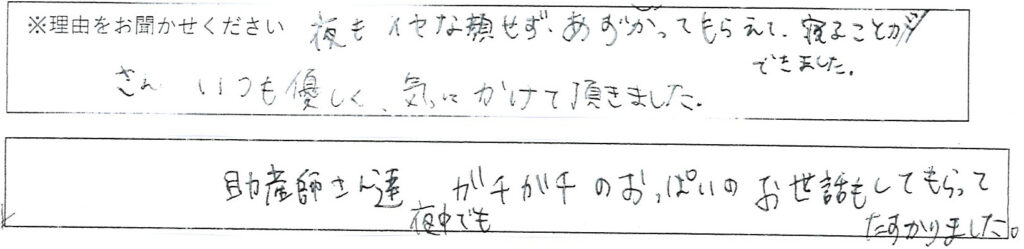 ※理由をお聞かせください 夜もイヤな顔せず、あずかってもらえて、寝ることが
できました。
さん いつも優しく、気にかけて頂きました。
助産師さん達 ガチガチのおっぱいのお世話もしてもらって
夜中でも たすかりました。